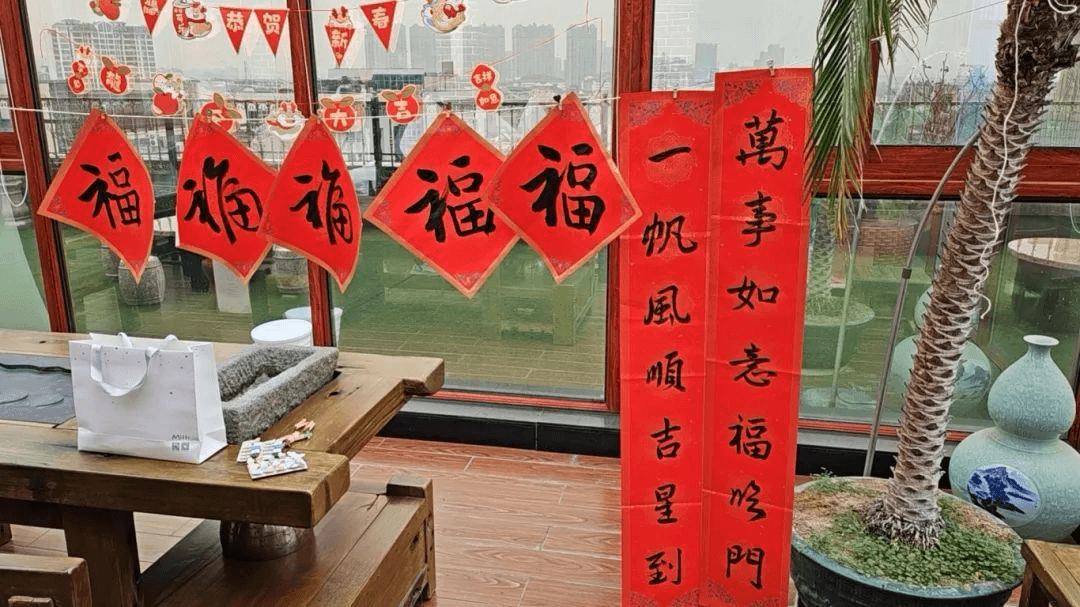 恭
贺
新
春
吉祥
如意
吉
福
福
福
福
福
萬事如意福臨門
一帆風順吉星到